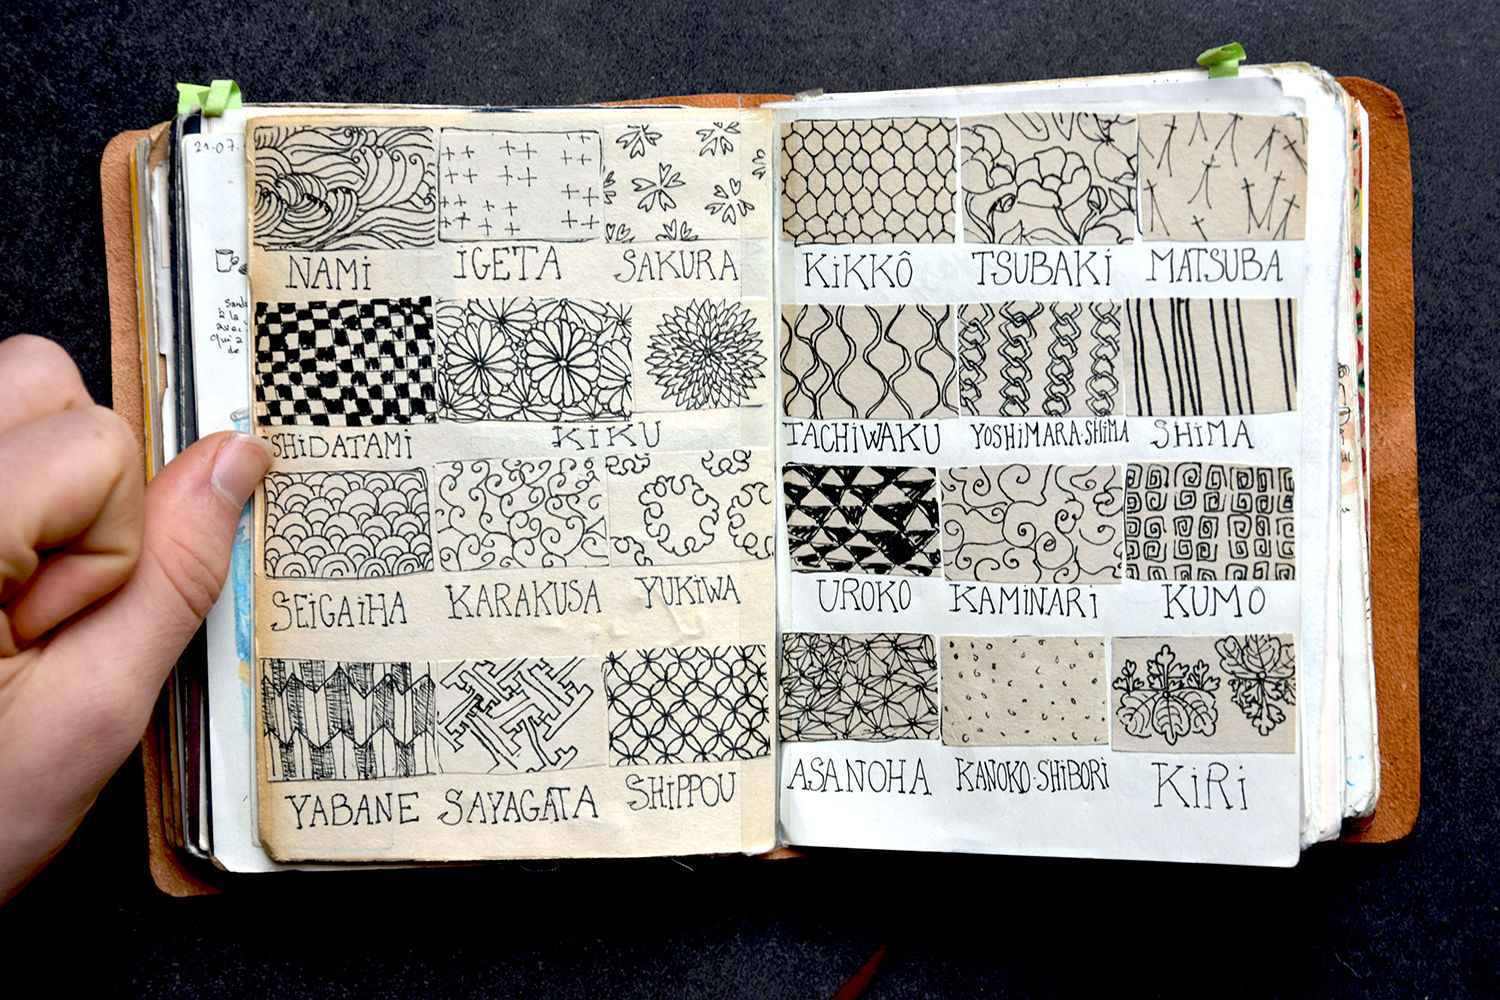 21.07.
NAMi
iGETA
SAKURA
iSHiDATAMi
KiKU
SEiGAiHA
KARAKUSA
YUKiWA
YABANE
SAYAGATA
SHiPPOU
KiKKÔ
TSUBAKi
MATSUBA
TACHiWAKU
YOSHiMARA-SHiMA
SHiMA
UROKO
KAMiNARi
KUMO
ASANOHA
KANOKO-SHiBORi
KiRi